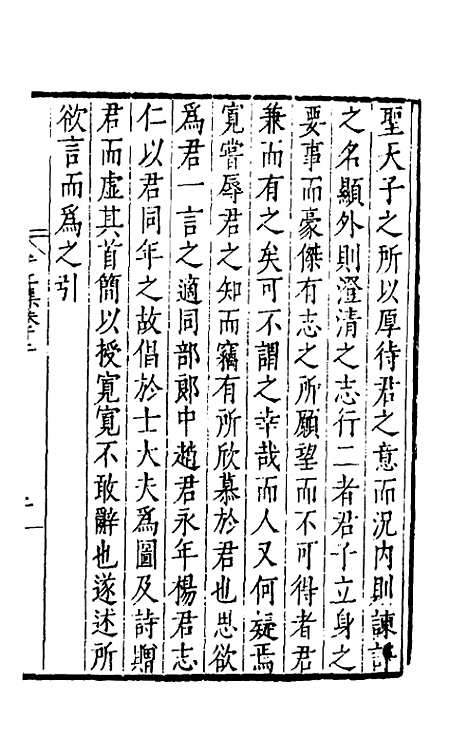 聖天子之所以厚待君之意而況内則諫
之名顯外則澄清之志行二者君子立身之
要事而豪傑有志之所願望而不可得者君
兼而有之矣可不謂之幸哉而人又何疑焉
寛嘗辱君之知而竊有所欣慕於君也思欲
爲君一言之適同部郎中趙君永年楊君志
仁以君同年之故倡於士大夫爲圖及詩贈
君而虚其首簡以授寛寛不敢辭也遂述所
欲言而爲之引